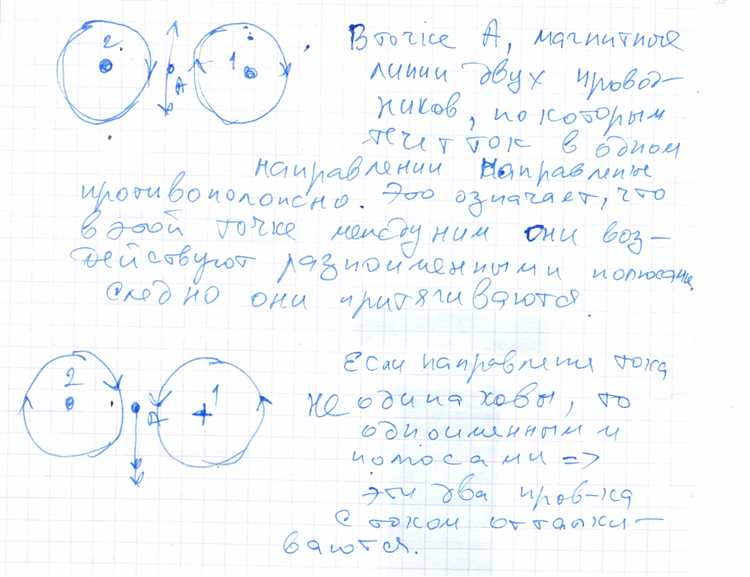 2
A
1
В точке А, магнитные
линии двух провод-
ников, по которым
течет ток в одном
направлении направлены
противоположно. Это означает, что
в этой точке между ним они воз-
действуют разноименными полюсами
следно они притягиваются.
2
A
1
Если направления тока
не одинаковы, то
одноименными
полюсами =>
эти два пров-ка
с током отталки-
ваются.